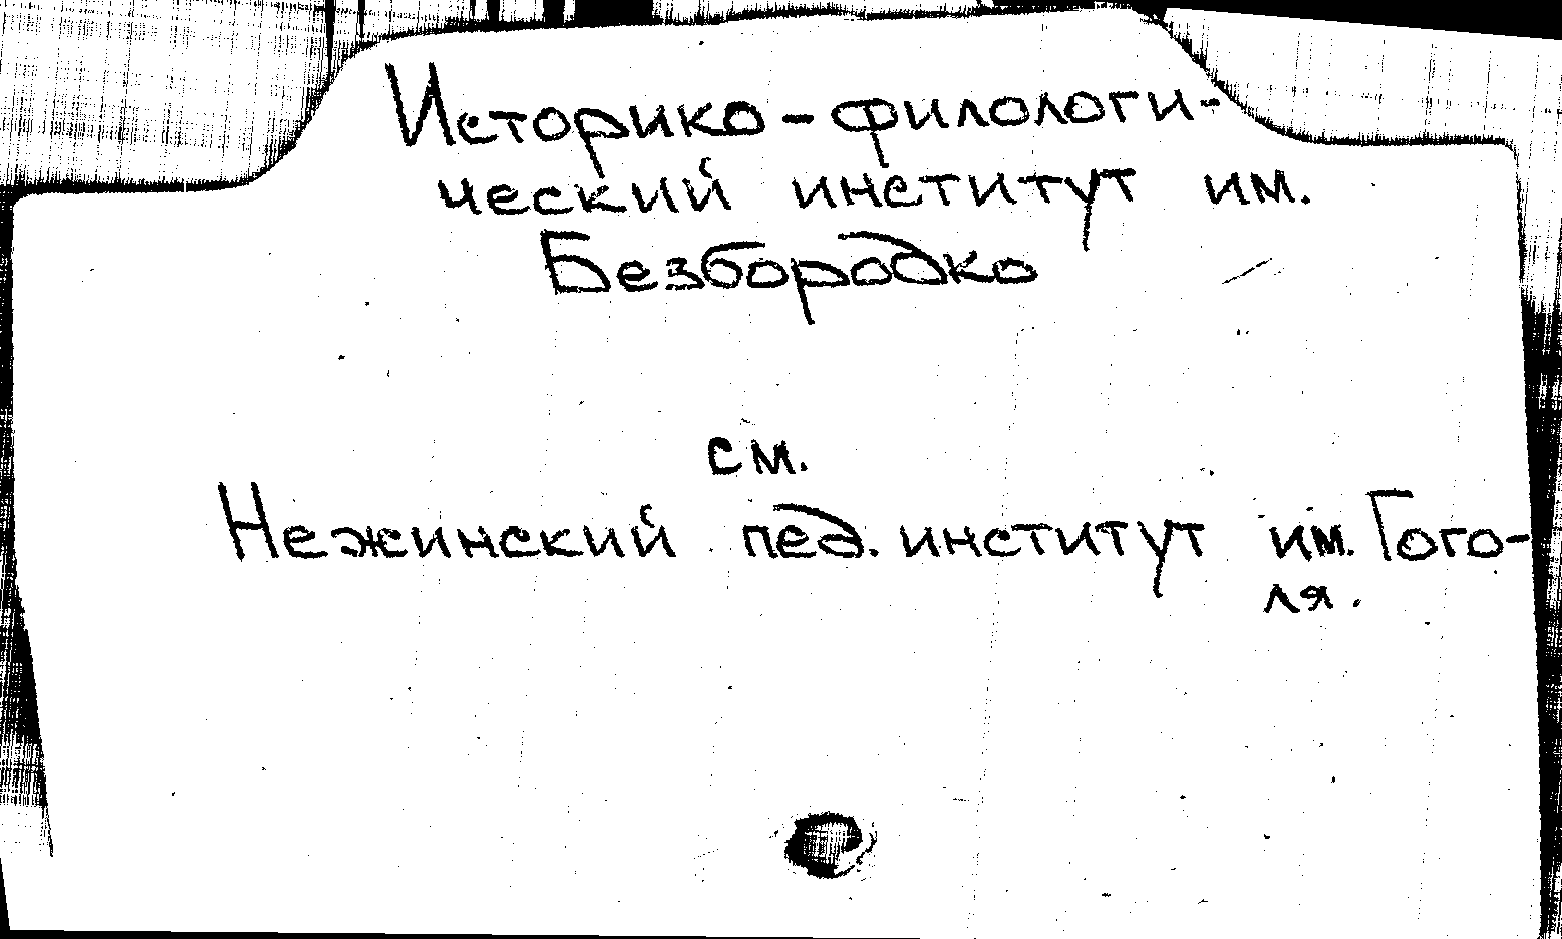 Историко-филологи-
ческий институт им.
Безбородко
см.
Нежинский пед. институт им. Гого-
ля.